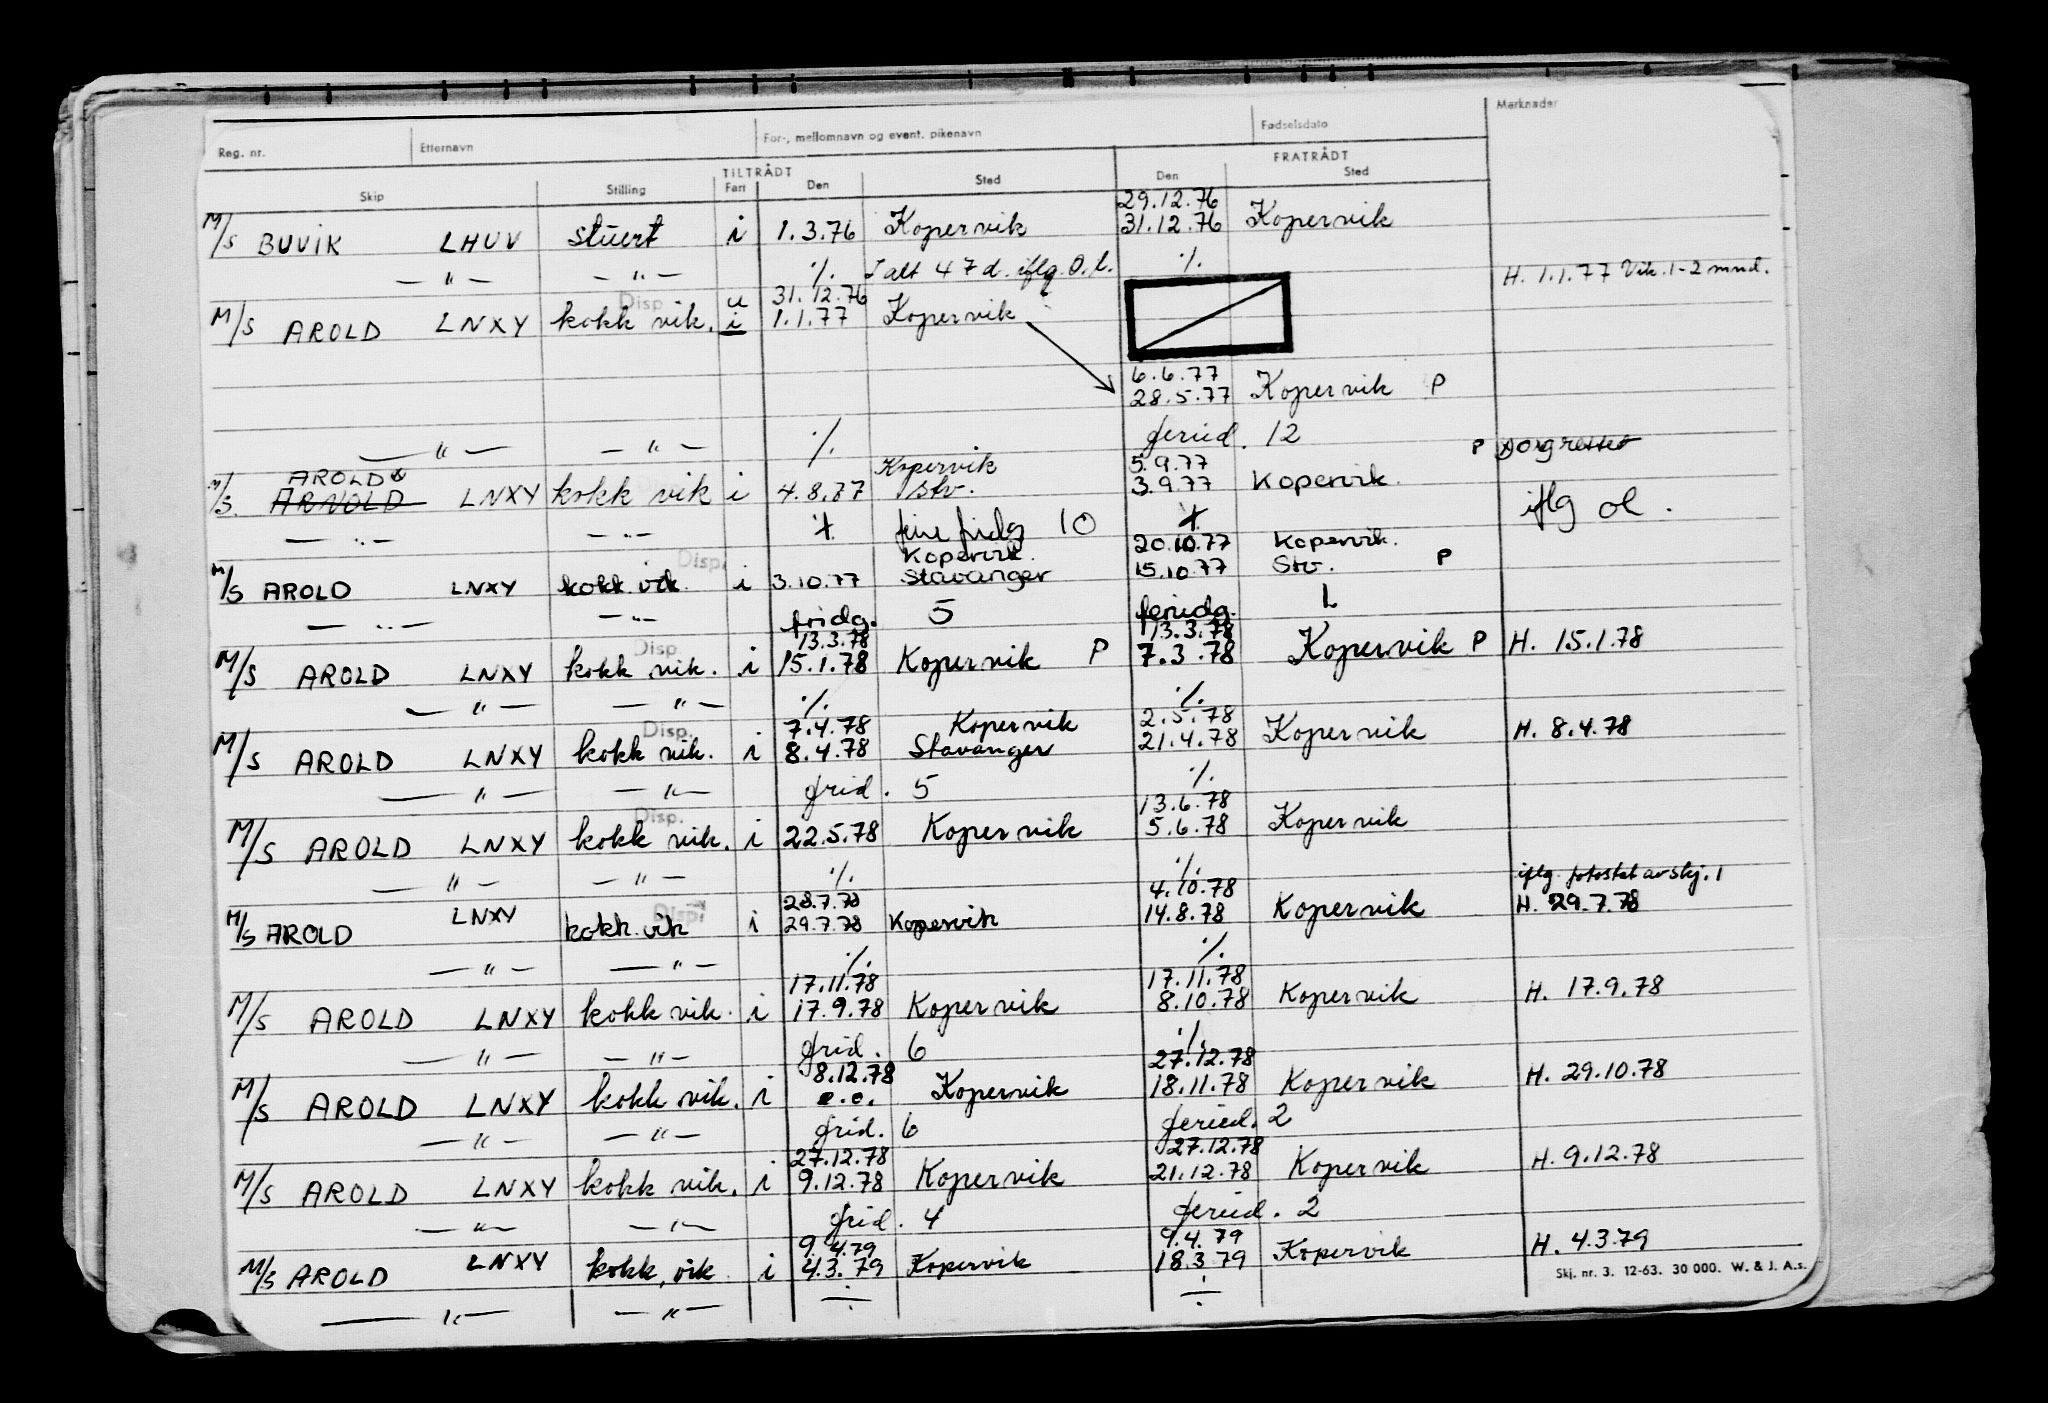 Reg. nr. Etternavn For-, mellomnavn og event. pikenavn Fødselsdato Merknader
TILTRÅDT FRATRÅDT
Skip Stilling Fart Den Sted Den Sted
29.12.76
M/S BUVIK LHUV stuert i 1.3.76 Kopervik 31.12.76 Kopervik
— " — — " — ./. I alt 47 d. iflg. O.l. ./. H. 1.1.77 Vik. 1-2 mnd.
Disp. u 31.12.76
M/S AROLD LNXY kokk vik. i 1.1.77 Kopervik
6.6.77
28.5.77 Kopervik P
— " — — " — ./. feried. 12
AROLD Kopervik 5.9.77 P
M/S. ARNOLD LNXY kokk vik i 4.8.77 Stv. 3.9.77 Kopervik.
— " — — " — feriefridg 10 iflg ol.
Disp. Kopervik. 20.10.77 Kopervik.
M/S AROLD LNXY kokk vik. i 3.10.77 Stavanger 15.10.77 Stv. P
— " — — " — fridg. 5 feriedg. 1
Disp. 13.3.78 13.3.78
M/S AROLD LNXY kokk vik. i 15.1.78 Kopervik P 7.3.78 Kopervik P H. 15.1.78
— " — — " — ./. ./.
Disp. 7.4.78 Kopervik 2.5.78
M/S AROLD LNXY kokk vik. i 8.4.78 Stavanger 21.4.78 Kopervik H. 8.4.78
— " — — " — frid. 5 ./.
Disp. 13.6.78
M/S AROLD LNXY kokk vik. i 22.5.78 Kopervik 5.6.78 Kopervik
— " — — " — ./. ./. iflg. fotostat av skj. 1
Disp. 28.7.78 4.10.78
M/S AROLD LNXY kokk vik i 29.7.78 Kopervik 14.8.78 Kopervik H. 29.7.78
— " — — " — ./. ./.
17.11.78 17.11.78
M/S AROLD LNXY kokk vik. i 17.9.78 Kopervik 8.10.78 Kopervik H. 17.9.78
— " — — " — frid. 6 ./.
8.12.78 27.12.78
M/S AROLD LNXY kokk vik. i e.o. Kopervik 18.11.78 Kopervik H. 29.10.78
— " — — " — frid. 6 feried. 2
27.12.78 27.12.78
M/S AROLD LNXY kokk vik. i 9.12.78 Kopervik 21.12.78 Kopervik H. 9.12.78
— " — — " — frid. 4 feried. 2
9.4.79 9.4.79
M/S AROLD LNXY kokk, vik i 4.3.79 Kopervik 18.3.79 Kopervik H. 4.3.79
— " — — " — ÷ ÷
Skj. nr. 3. 12-63. 30 000. W. & J. A.s.